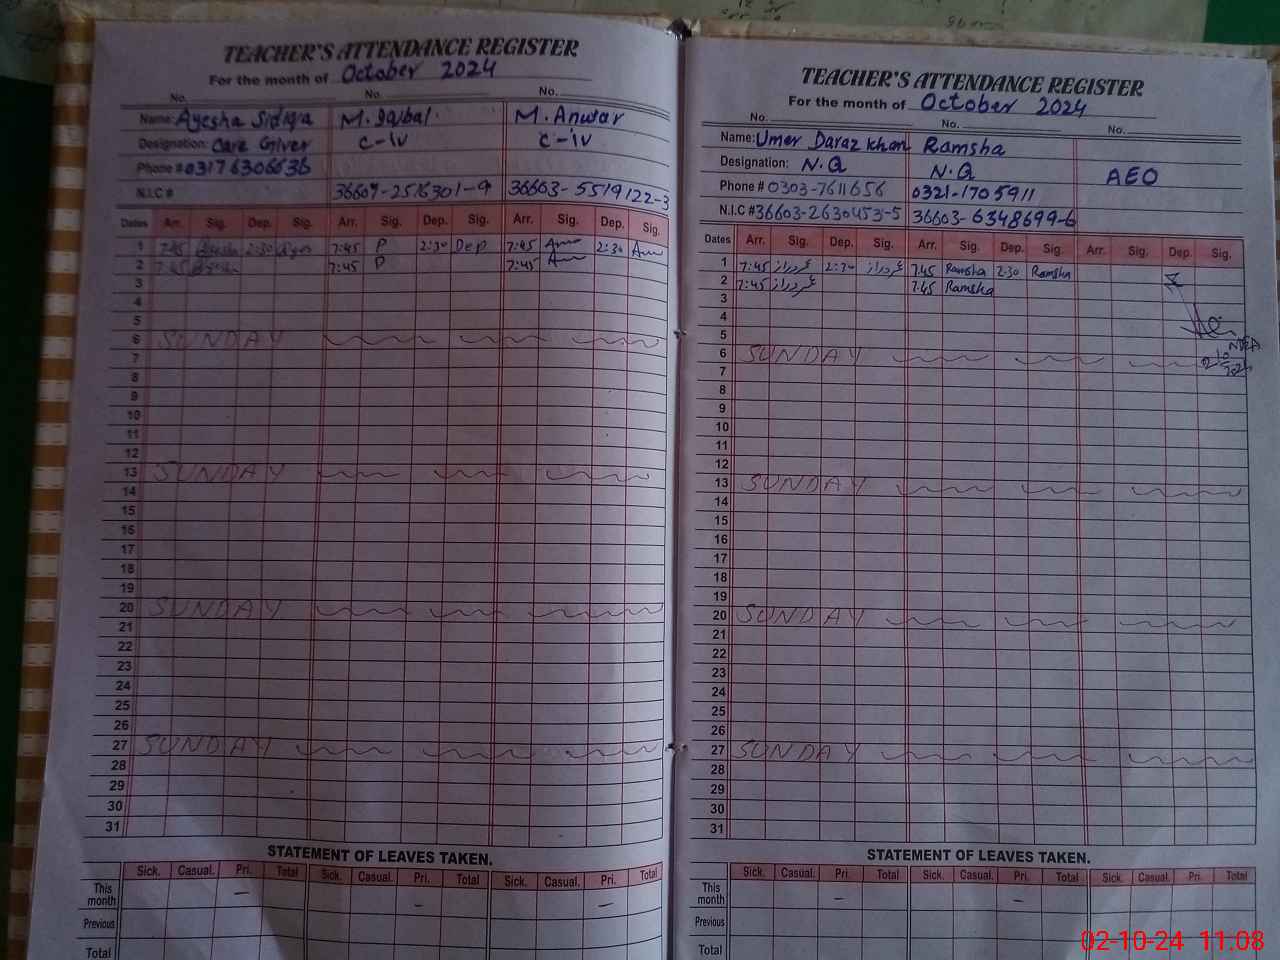 TEACHER'S ATTENDANCE REGISTER
For the month of October 2024
No. No. No.
Name: Ayesha Sidiqa M. Iqbal M. Anwar
Designation: Care Giver C-iv C-iv
Phone # 03176306636
N.I.C # 36603-5519122-3
Dates Arr. Sig. Dep. Sig. Arr. Sig. Dep. Sig. Arr. Sig. Dep. Sig.
1 7:45 2:30 7:45 P 2:30 Dep 7:45 2:30
2 7:45 7:45 P 7:45
3
4
5
6 SUNDAY
7
8
9
10
11
12
13 SUNDAY
14
15
16
17
18
19
20 SUNDAY
21
22
23
24
25
26
27 SUNDAY
28
29
30
31
STATEMENT OF LEAVES TAKEN.
Sick. Casual. Pri. Total Sick. Casual. Pri. Total Sick. Casual. Pri. Total
This month – – –
Previous
Total
TEACHER'S ATTENDANCE REGISTER
For the month of October 2024
No. No. No.
Name: Umer Daraz Khan Ramsha
Designation: N.Q N.Q AEO
Phone # 0303-7611656 0321-1705911
N.I.C # 36603-2630453-5 36603-6348699-6
Dates Arr. Sig. Dep. Sig. Arr. Sig. Dep. Sig. Arr. Sig. Dep. Sig.
1 7:45 عمردراز 2:30 عمردراز 7:45 Ramsha 2:30 Ramsha
2 7:45 عمردراز 7:45 Ramsha
3
4
5
6 SUNDAY
7
8
9
10
11
12
13 SUNDAY
14
15
16
17
18
19
20 SUNDAY
21
22
23
24
25
26
27 SUNDAY
28
29
30
31
STATEMENT OF LEAVES TAKEN.
Sick. Casual. Pri. Total Sick. Casual. Pri. Total Sick. Casual. Pri. Total
This month – –
Previous
Total
02-10-24 11:08